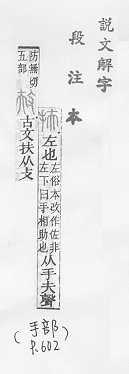 說文解字
段注本
左也左俗本改作佐非左下曰手相助也从手夫聲
防無切五部
古文扶从攴
(手部)
P.602